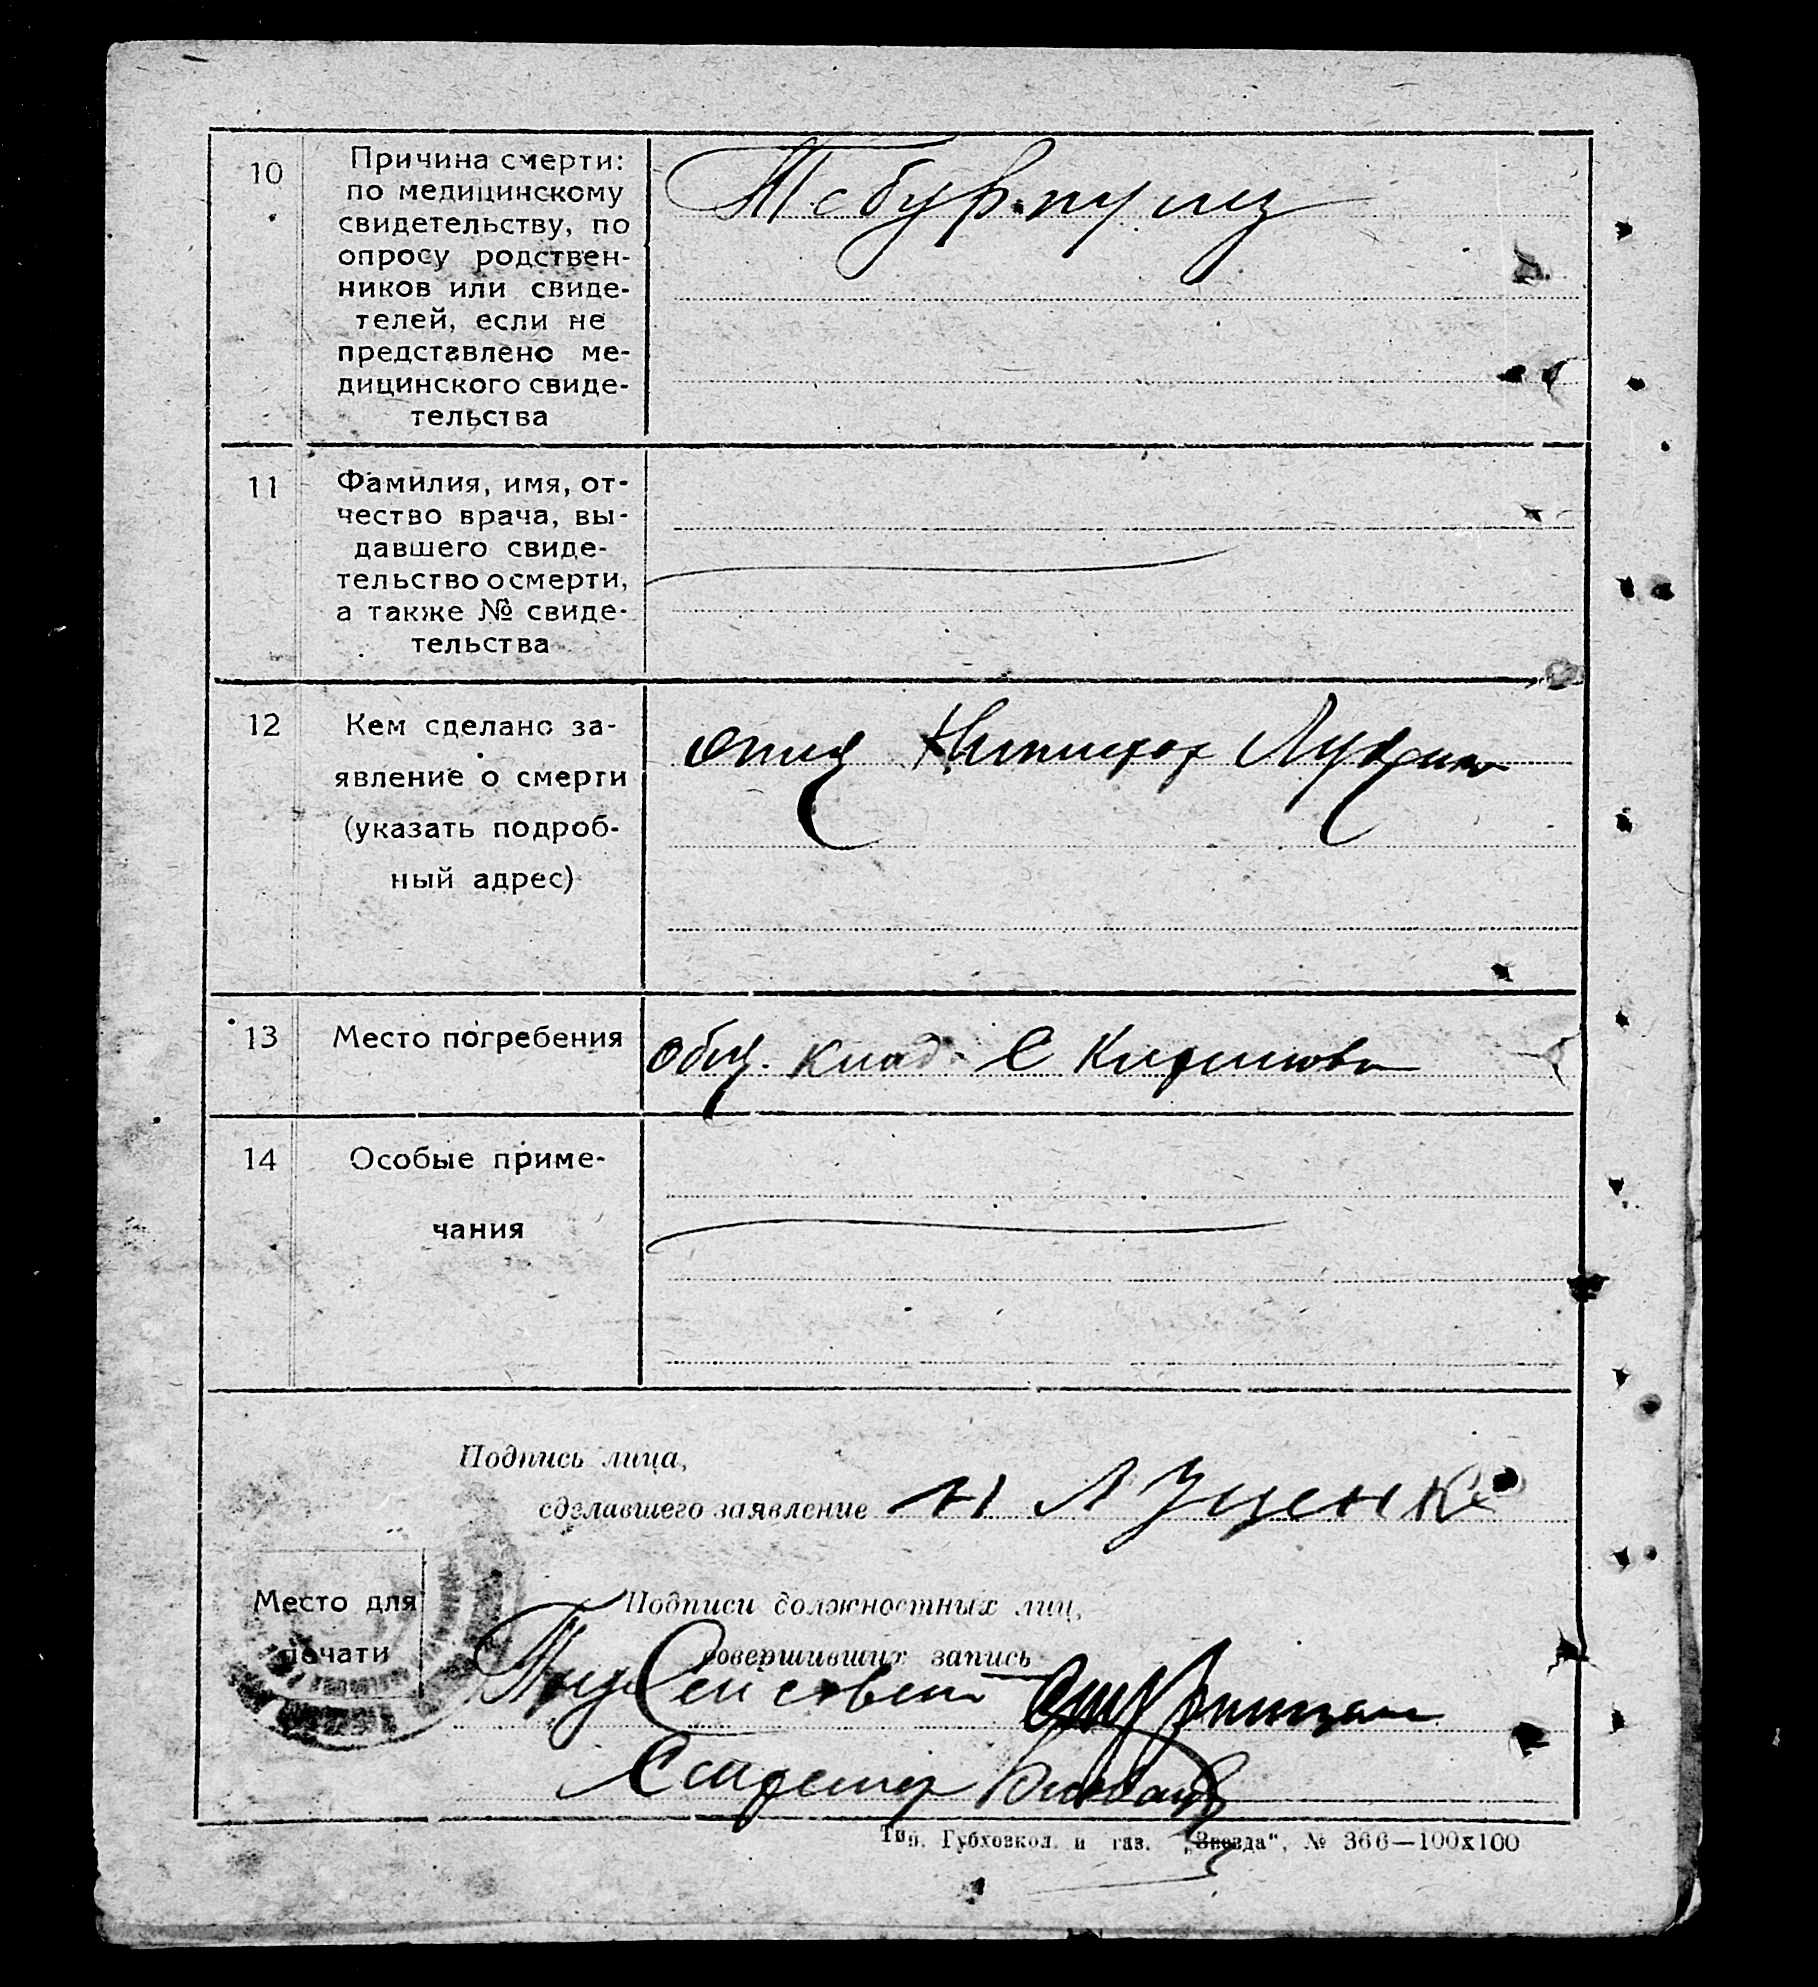 10
Причина смерти:
по медицинскому
свидетельству, по
опросу родствен-
ников или свиде-
телей, если не
представлено ме-
дицинского свиде-
тельства
11
Фамилия, имя, от-
чество врача, вы-
давшего свиде-
тельство о смерти,
а также № свиде-
тельства
12
Кем сделано за-
явление о смерти
(указать подроб-
ный адрес)
отец
13
Место погребения
общ. клад. С
14
Особые приме-
чания
Подпись лица,
сделавшего заявление Н Луценко
Место для
печати
Подписи должностных лиц,
совершивших запись
Секретарь
Тип. Губхозкол. и газ. „Звезда“, № 366—100х100